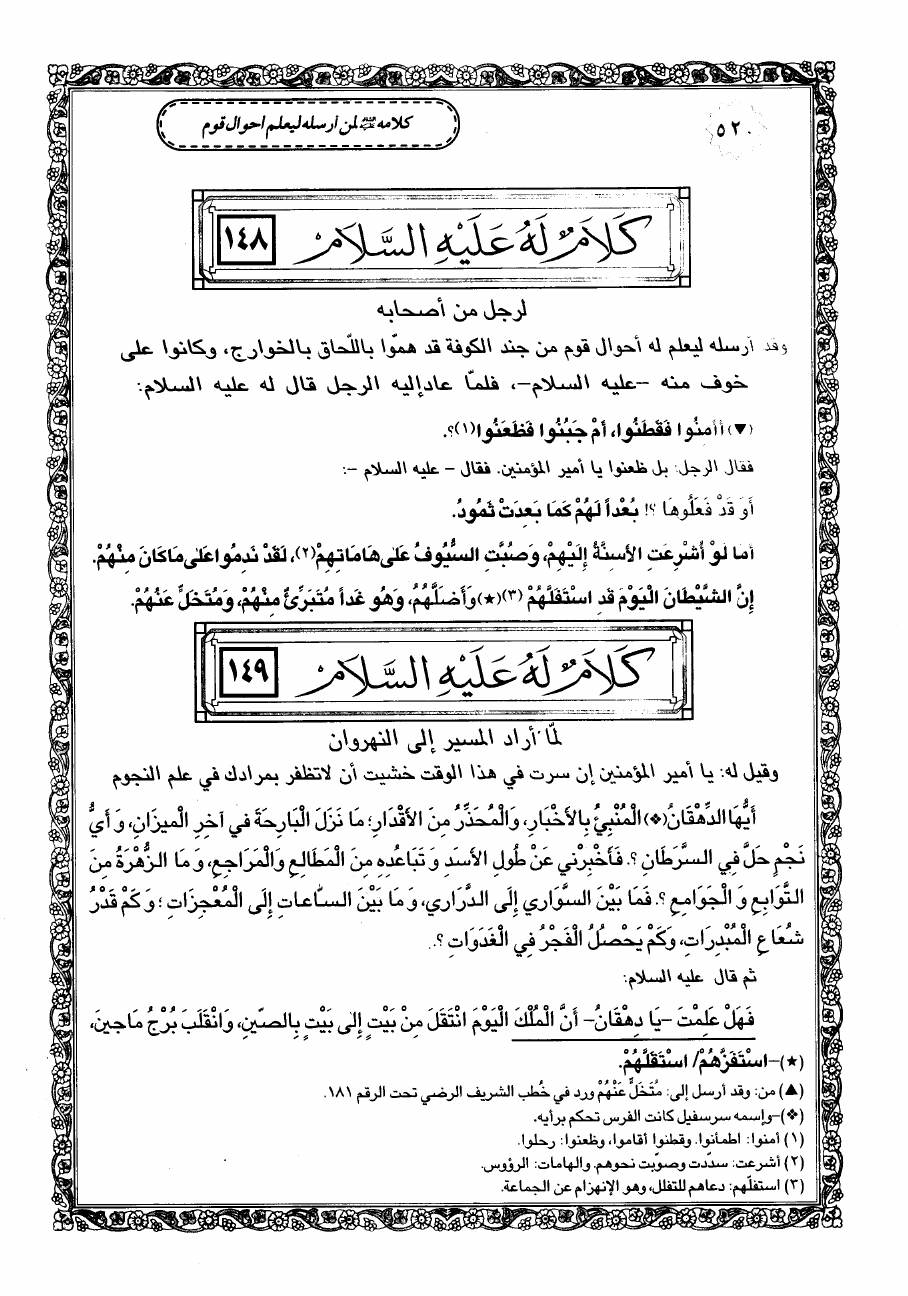 ٥٢٠
كلامه عليه السلام لمن أرسله ليعلم احوال قوم
كَلَامٌ لَهُ عَلَيْهِ السَّلَامُ
١٤٨
لرجل من أصحابه
وقد أرسله ليعلم له أحوال قوم من جند الكوفة قد همّوا باللّحاق بالخوارج، وكانوا على
خوف منه -عليه السلام-، فلمّا عادإليه الرجل قال له عليه السلام:
(▼)أأَمِنُوا فَقَطَنُوا، أَمْ جَبُنُوا فَظَعَنُوا(١)؟.
فقال الرجل: بل ظعنوا يا أمير المؤمنين. فقال - عليه السلام -:
أَوَ قَدْ فَعَلُوهَا ؟! بُعْداً لَهُمْ كَمَا بَعِدَتْ ثَمُودُ.
أما لَوْ أُشْرِعَتِ الأَسِنَّةُ إِلَيْهِمْ، وَصُبَّتِ السُّيُوفُ عَلى هَامَاتِهِمْ(٢)، لَقَدْ نَدِمُوا عَلى مَا كَانَ مِنْهُمْ.
إِنَّ الشَّيْطَانَ الْيَوْمَ قَدِ اسْتَفَلَّهُمْ (٣)(★)وَأَضَلَّهُمْ، وَهُوَ غَداً مُتَبَرِّئٌ مِنْهُمْ، وَمُتَخَلٍّ عَنْهُمْ.
كَلَامٌ لَهُ عَلَيْهِ السَّلَامُ
١٤٩
لمّا أراد المسير إلى النهروان
وقيل له: يا أمير المؤمنين إن سرت في هذا الوقت خشيت أن لاتظفر بمرادك في علم النجوم
أَيُّهَا الدِّهْقَانُ(❖) الْمُنْبِئُ بِالأَخْبَارِ، وَالْمُحَذِّرُ مِنَ الأَقْدَارِ؛ مَا نَزَلَ الْبَارِحَةَ في آخِرِ الْميزَانِ، وَ أَيُّ
نَجْمٍ حَلَّ فِي السَّرَطَانِ ؟. فَأَخْبِرْني عَنْ طُولِ الأَسَدِ وَ تَبَاعُدِهِ مِنَ الْمَطَالِعِ وَالْمَرَاجِعِ، وَ مَا الزُّهْرَةُ مِنَ
التَّوَابِعِ وَ الْجَوَامِعِ ؟. فَمَا بَيْنَ السَّوَارِي إِلَى الدَّرَارِي، وَ مَا بَيْنَ السَّاعَاتِ إِلَى الْمُعْجِزَاتِ ؛ وَ كَمْ قَدْرُ
شُعَاعِ الْمُبْدِرَاتِ، وَكَمْ يَحْصُلُ الْفَجْرُ فِي الْغَدَوَاتِ ؟.
ثم قال عليه السلام:
فَهَلْ عَلِمْتَ -يَا دِهْقَانُ- أَنَّ الْمُلْكَ الْيَوْمَ انْتَقَلَ مِنْ بَيْتٍ إِلى بَيْتٍ بِالصّينِ، وَانْقَلَبَ بُرْجُ مَاجينَ،
(★)-اسْتَفَزَّهُمْ/ اسْتَقَلَّهُمْ.
(▲) من: وقد أرسل إلى: مُتَخَلٍّ عَنْهُمْ ورد في خُطب الشريف الرضي تحت الرقم ١٨١.
(❖)-وإسمه سرسفيل كانت الفرس تحكم برأيه.
(١) أمنوا: اطمأنوا. وقطنوا أقاموا، وظعنوا: رحلوا.
(٢) أشرعت: سدّدت وصوّبت نحوهم. والهامات: الرؤوس.
(٣) استفلّهم: دعاهم للتفلل، وهو الإنهزام عن الجماعة.